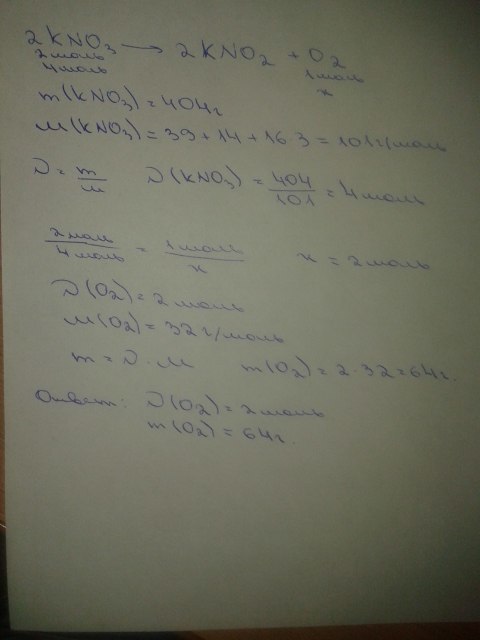 2KNO3 → 2KNO2 + O2
2моль 1моль
4моль x
m(KNO3) = 404г
M(KNO3) = 39+14+16·3 = 101г/моль
ν = m/M ν(KNO3) = 404/101 = 4моль
2моль/4моль = 1моль/x x = 2моль
ν(O2) = 2моль
M(O2) = 32г/моль
m = ν·M m(O2) = 2·32 = 64г.
Ответ: ν(O2) = 2моль
m(O2) = 64г.